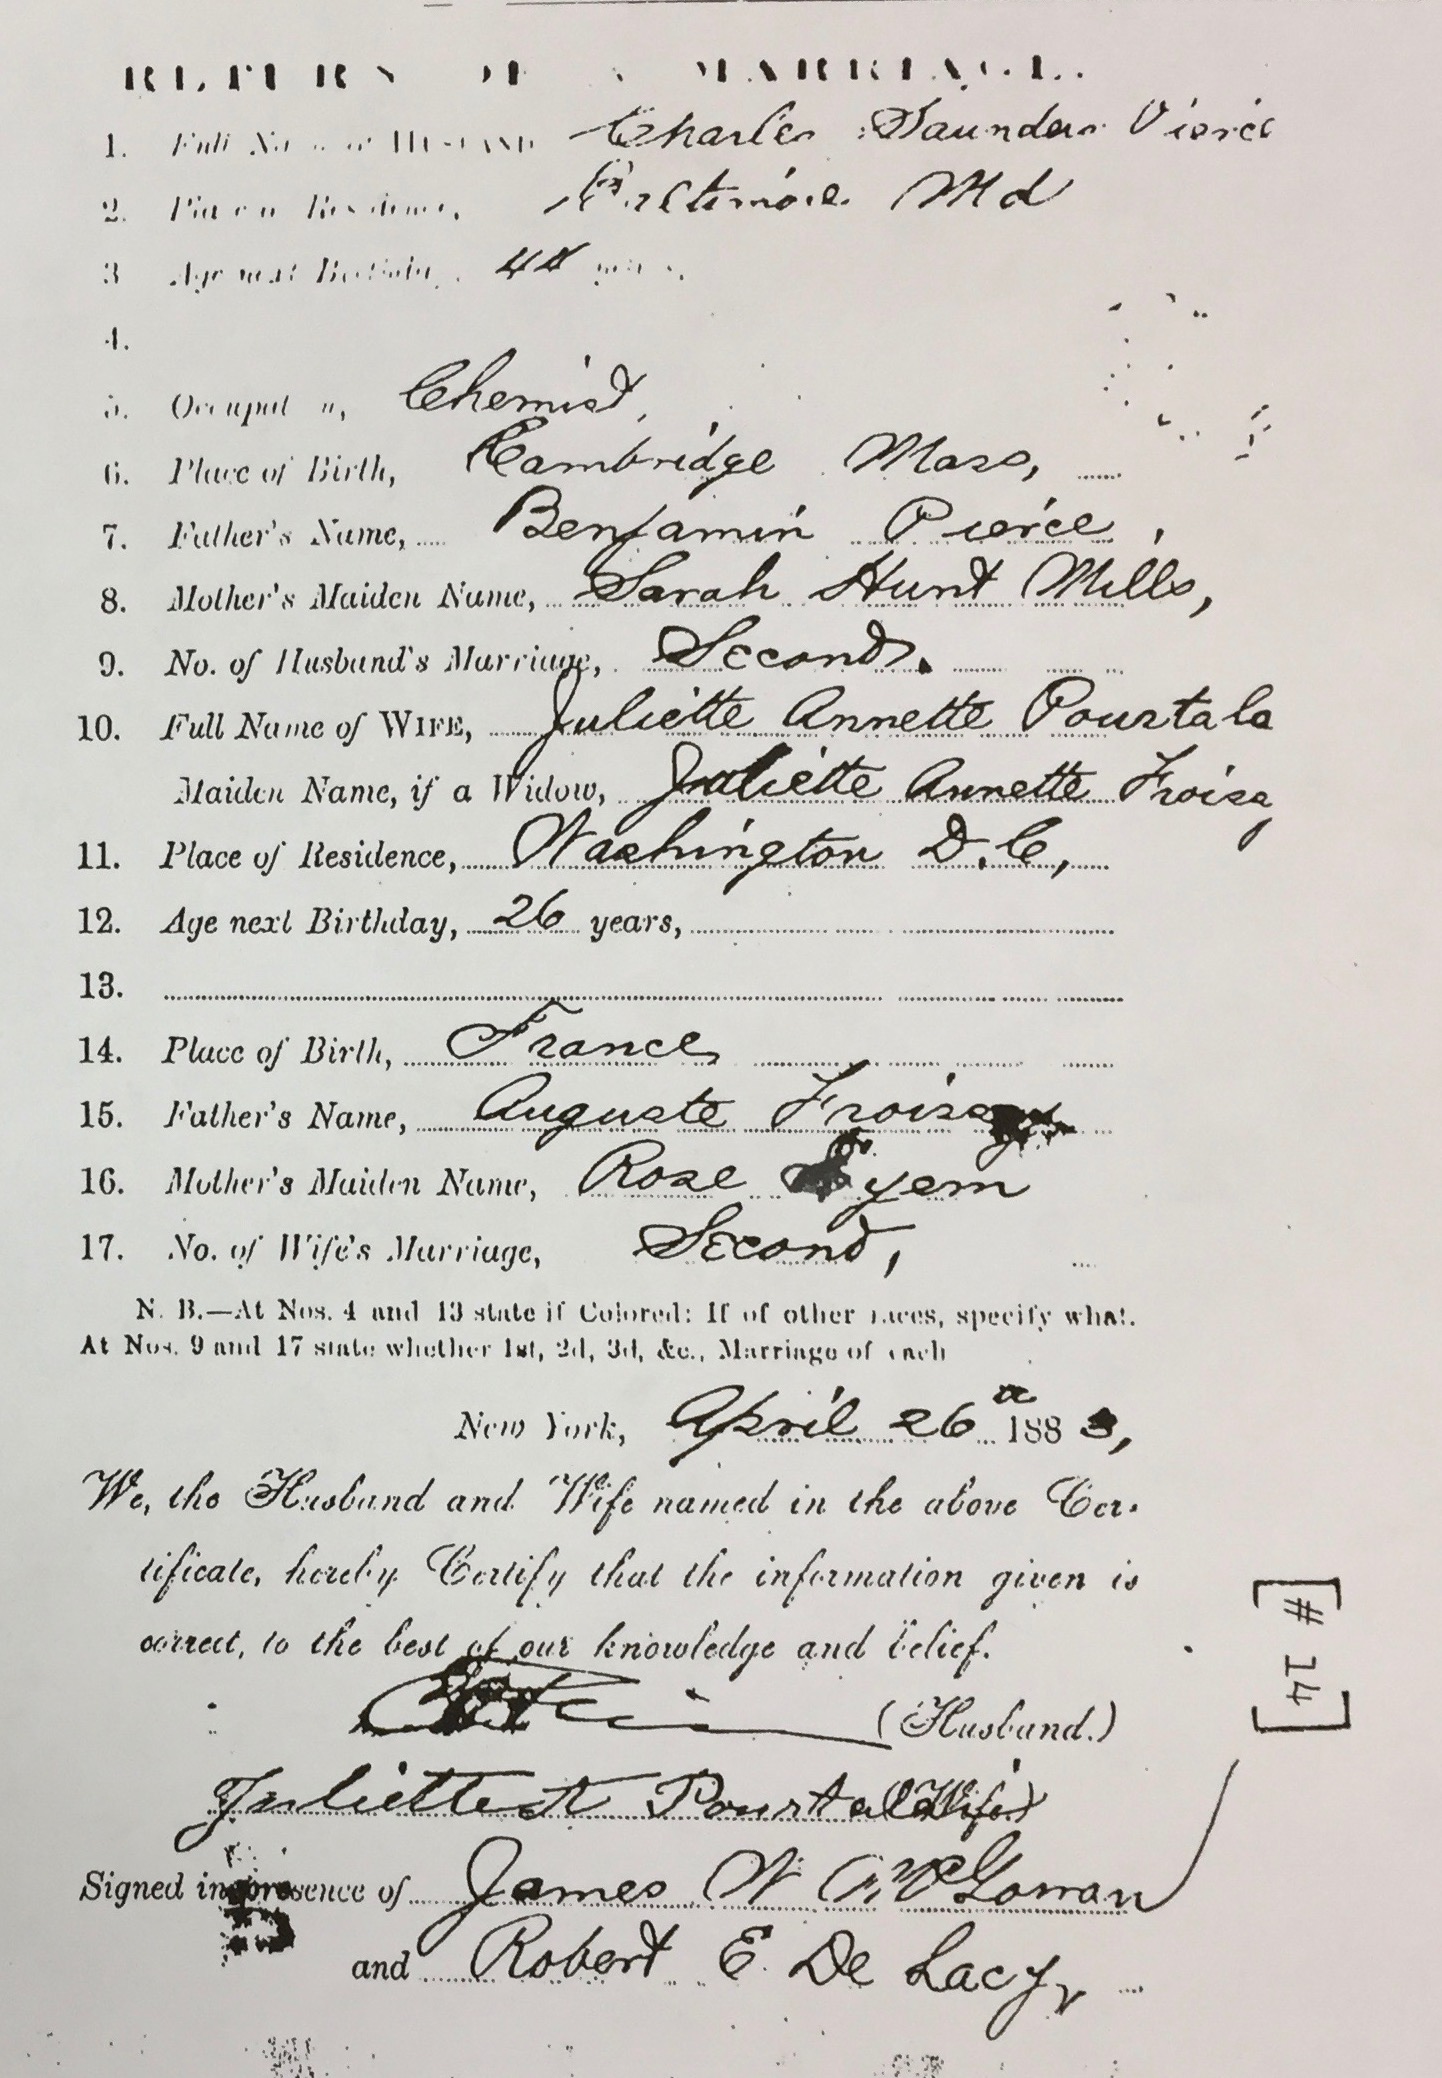 RETURN OF A MARRIAGE.
1. Full Name of HUSBAND, Charles Saunders Pierce
2. Place of Residence, Baltimore Md
3 Age next Birthday, 44 years,
4.
5. Occupation, Chemist,
6. Place of Birth, Cambridge Mass,
7. Father's Name, Benjamin Pierce,
8. Mother's Maiden Name, Sarah Hunt Mills,
9. No. of Husband's Marriage, Second.
10. Full Name of WIFE, Juliette Annette Pourtala
Maiden Name, if a Widow, Juliette Annette Froisa,
11. Place of Residence, Washington D.C,
12. Age next Birthday, 26 years,
13.
14. Place of Birth, France,
15. Father's Name, Auguste
16. Mother's Maiden Name, Rose
17. No. of Wife's Marriage, Second,
N. B.—At Nos. 4 and 13 state if Colored: If of other races, specify what.
At Nos. 9 and 17 state whether 1st, 2d, 3d, &c., Marriage of each
New York, April 26 1883,
We, the Husband and Wife named in the above Cer-
tificate, hereby Certify that the information given is
correct, to the best of our knowledge and belief.
(Husband.)
Juliette A Pourtala (Wife.)
Signed in presence of James W McGowan
and Robert E. De Lacy,
[# 14]